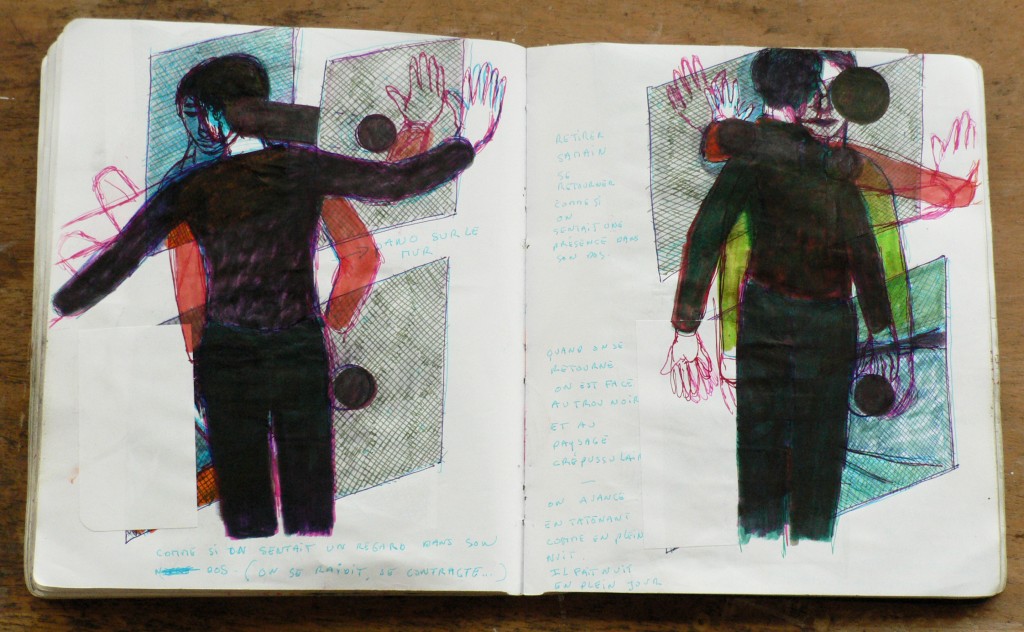 MAINO SUR LE
MUR
COMME SI ON SENTAIT UN REGARD DANS SON
DOS. (ON SE RAIDIT, SE CONTRACTE...)
RETIRER
SA MAIN
SE
RETOURNER
COMME SI
ON
SENTAIT UNE
PRESENCE DANS
SON DOS.
QUAND ON SE
RETOURNE
ON EST FACE
AU TROU NOIR
ET AU
PAYSAGE
CRÉPUSSULAIR
—
ON AVANCE
EN TATONANT
COMME EN PLEIN
NUIT.
IL FAIT NUIT
EN PLEIN JOUR